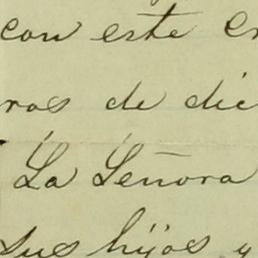 con este en
ros de dic
La Señora
sus hijos y